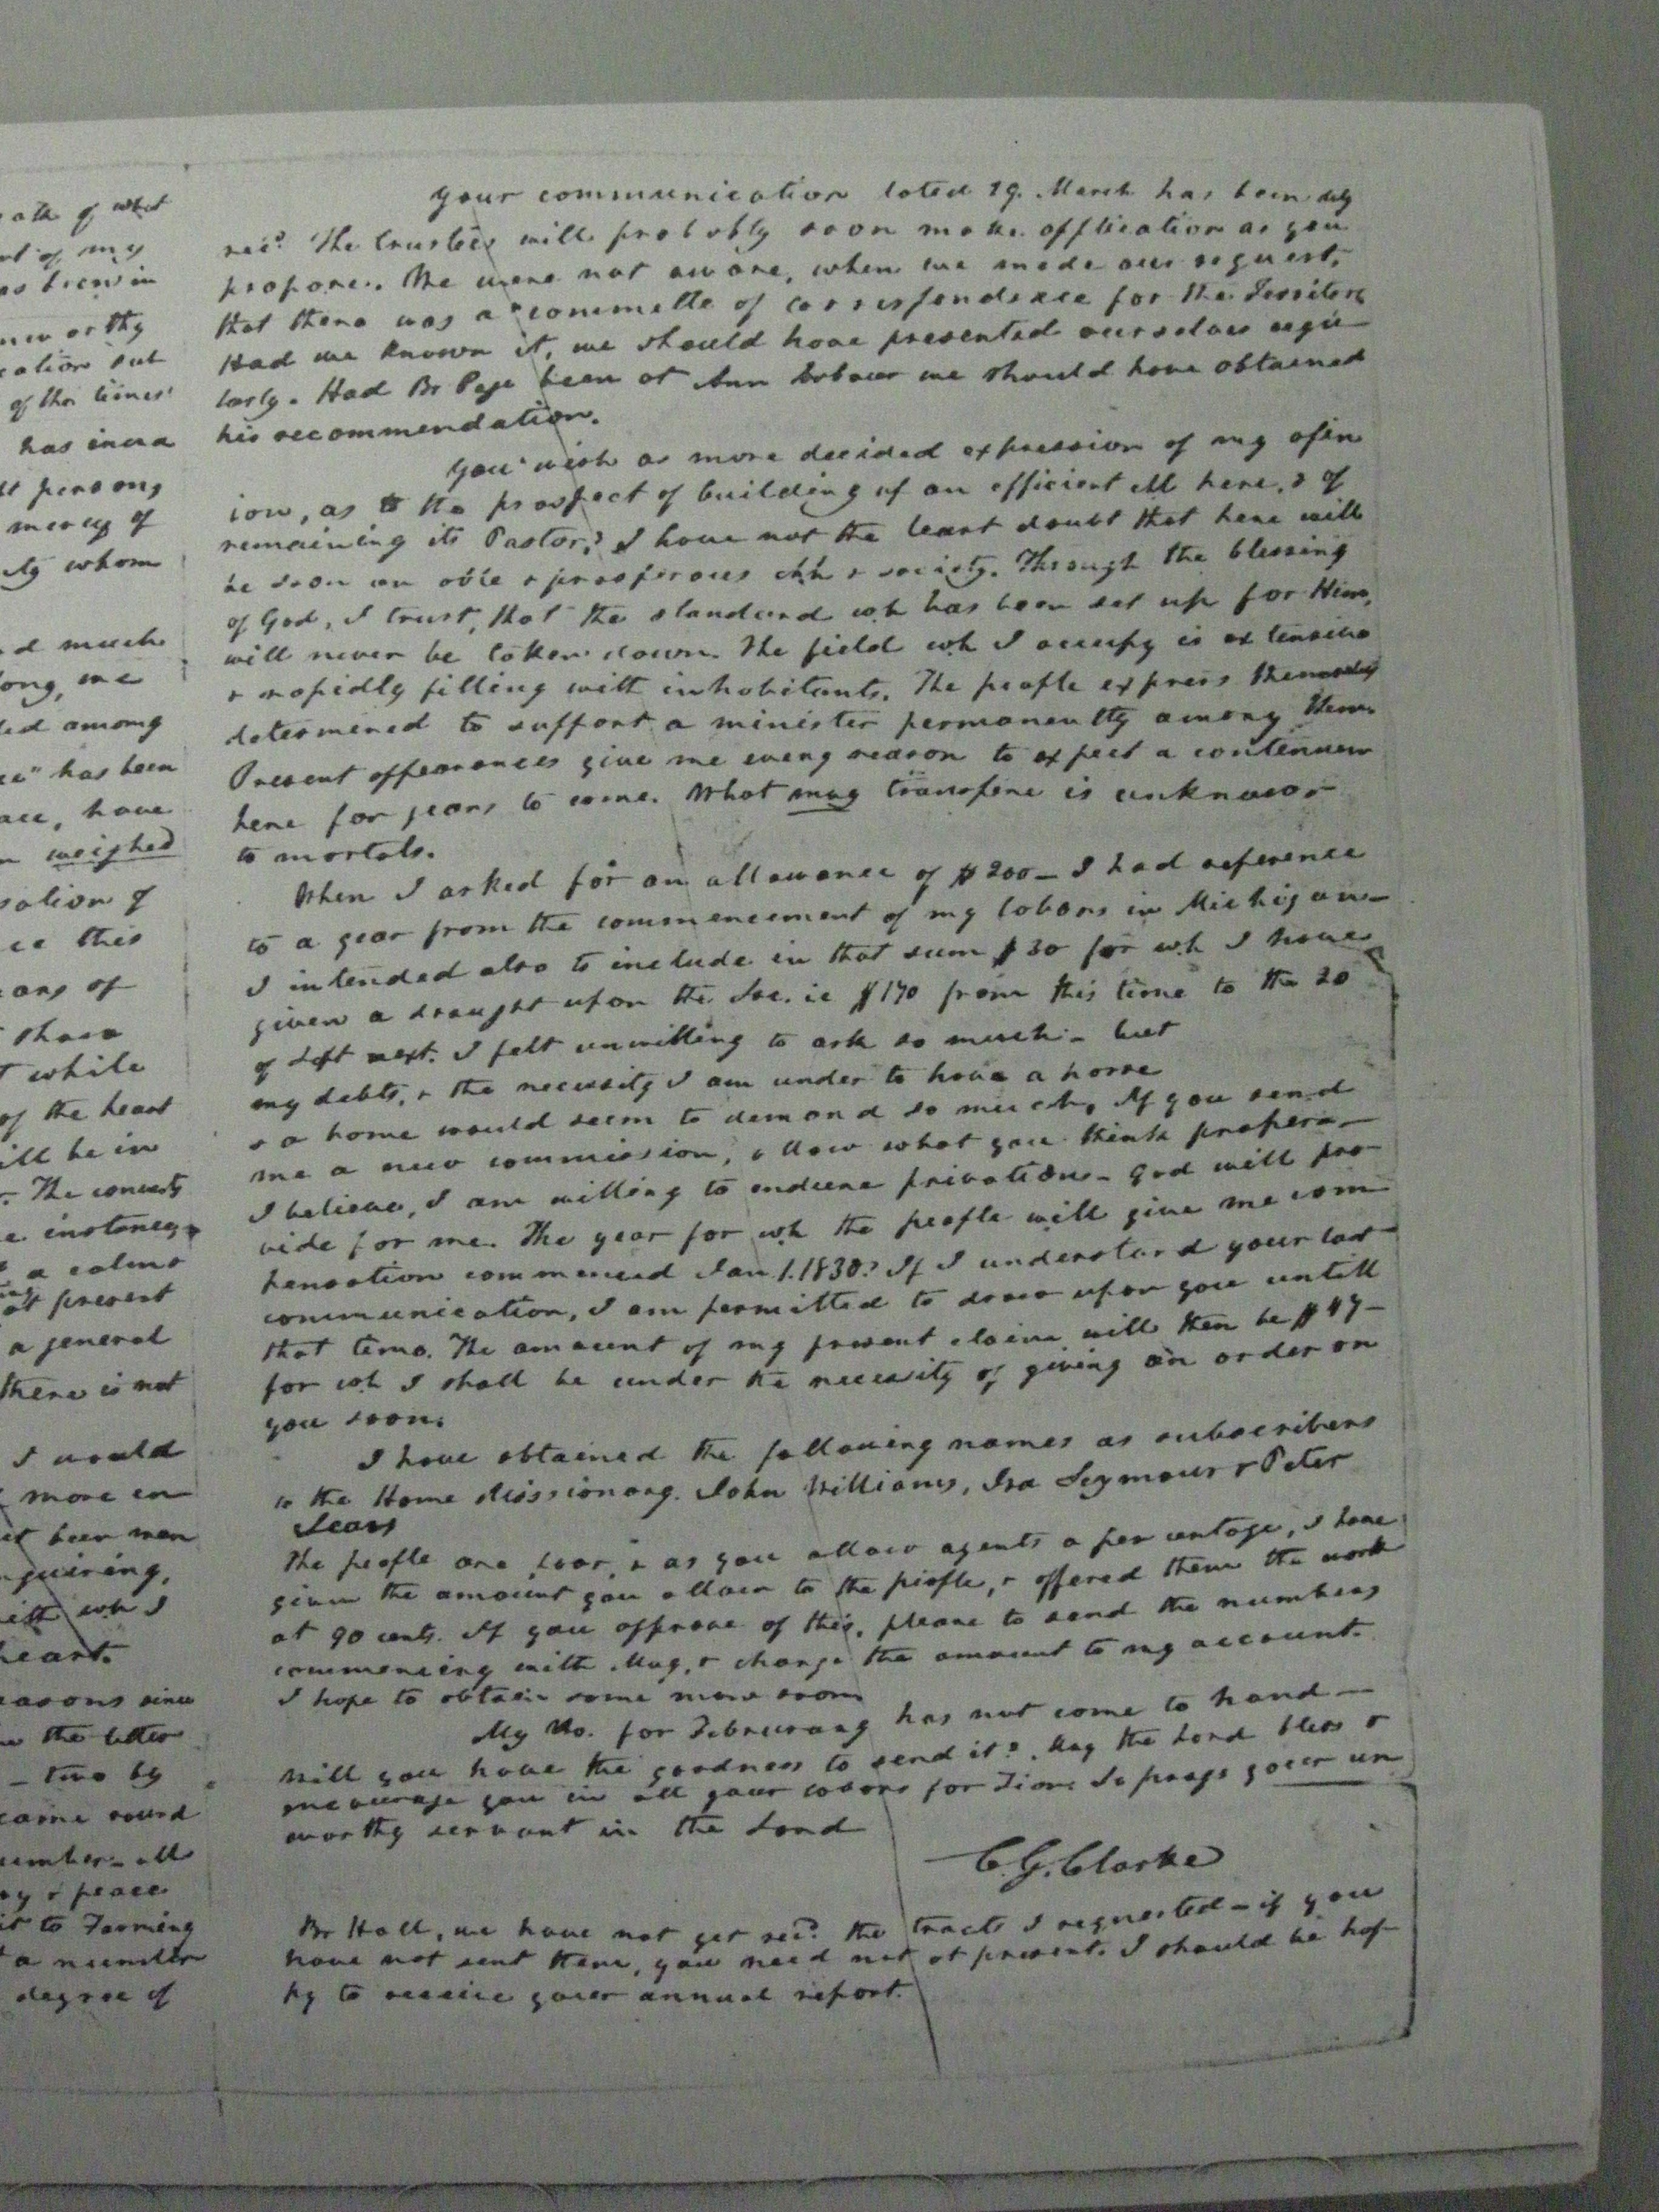 oath of what
nt of my
as been in
nworthy
cation but
of the times
has incra
st persons
mercy of
by whom
d much
long, we
led among
ce" has been
ace, have
n weighed
sation of
ce this
ons of
those
t while
of the heart
ill be in
The converts
e instances
a calm
at present
a general
there is not
I would
more en
et been men
nquiring,
with wh I
heart.
easons since
the latter
– two by
came round
umber – all
oy & peace
it to Farming
a number
degree of
Your communication dated 19. March has been duly
recd. The trustees will probably soon make application as you
propose. We were not aware, when we made our request,
that there was a "committe of correspondence for the Territory
Had we known it, we should have presented ourselves regu
larly. Had Br Page been at Ann Arbour we should have obtained
his recommendation.
You wish a more decided expression of my opin
ion, as to the prospect of building up an efficient chh here, & of
remaining its Pastor? I have not the least doubt that here will
be soon an able & prosperous chh & society. Through the blessing
of God, I trust, that the standard wh has been set up for Him,
will never be taken down. The field wh I occupy is extensive
& rapidly filling with inhabitants. The people express themselves
determined to support a minister permanently among them.
Present appearances give me every reason to expect a continuan
here for years to come. What may transpire is unknown
to mortals.
When I asked for an allowance of $200 – I had reference
to a year from the commencement of my labors in Michigan –
I intended also to include in that sum $30 for wh I have
given a draught upon the Soc. ie $170 from this time to the 20
of Sept next. I felt unwilling to ask so much – but
my debts, & the necessity I am under to have a horse
& a home would seem to demand so much. If you send
me a new commission, allow what you think proper –
I believe, I am willing to endure privations – God will pro
vide for me. The year for wh the people will give me com
pensation commenced Jan. 1. 1830? If I understand your last
communication, I am permitted to draw upon you untill
that time. The amount of my present claim will then be $47 –
for wh I shall be under the necessity of giving an order on
you soon.
I have obtained the following names as subscribers
to the Home Missionary. John Williams, Ira Seymour & Peter
Sears
The people are poor, & as you allow agents a per centage, I have
given the amount you allow to the people, & offered them the work
at 90 cents. If you approve of this, please to send the numbers
commencing with May, & charge the amount to my account.
I hope to obtain some more soon
My No. for Februrary has not come to hand –
Will you have the goodness to send it? May the Lord bless &
encourage you in all your labors for Zion. So prays your un
worthy servant in the Lord
C. G. Clarke
Br Hall, we have not yet recd. the tracts I requested – if you
have not sent them, you need not at present. I should be hap
py to receive your annual report.